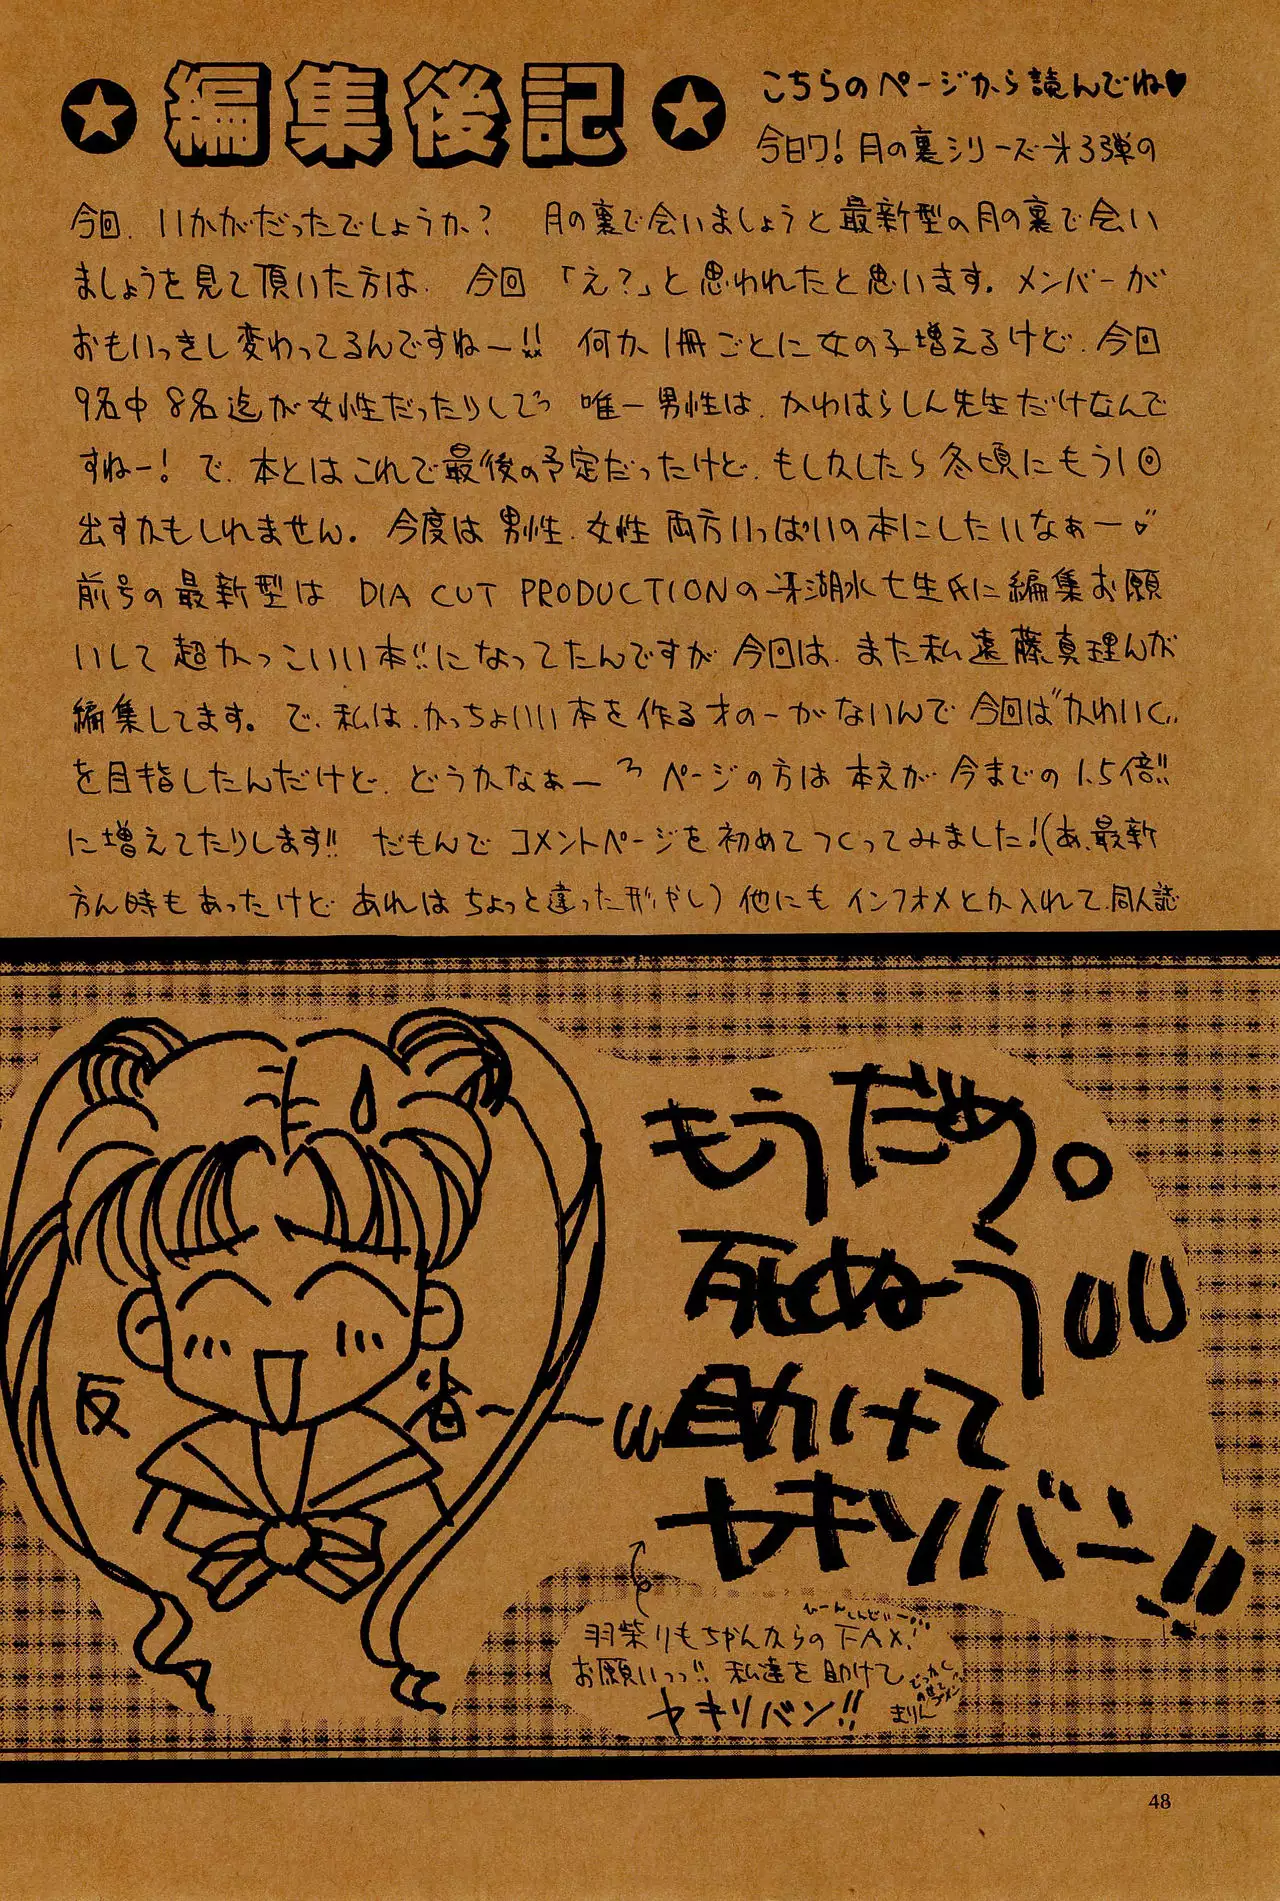 ★編集後記★
こちらのページから読んでね♥
今日ワ!月の裏シリーズ第3弾の
今回、いかがだったでしょうか?月の裏で会いましょうと最新型の月の裏で会い
ましょうを見て頂いた方は、今回「え?」と思われたと思います。メンバーが
おもいっきし変わってるんですねー!!何か1冊ごとに女の子増えるけど、今回
9名中8名迄が女性だったりしてっ 唯一男性は、かわはらしん先生だけなんで
すねー!で、本とはこれで最後の予定だったけど、もしかしたら冬頃にもう1回
出すかもしれません。今度は男性、女性両方いっぱいの本にしたいなぁー♡
前号の最新型はDIA CUT PRODUCTIONの冴湖水七生氏に編集お願
いして超かっこいい本!!になってたんですが今回は、また私遠藤真理んが
編集してます。で、私は、かっちょいい本を作る才のーがないんで今回は"かわいく"
を目指したんだけど、どうかなぁーっ ページの方は本文が今までの1.5倍!!
に増えてたりします!!だもんでコメントページを初めてつくってみました!(あ、最新
方ん時もあったけどあれはちょっと違った形やし)他にもインフォメとか入れて、同人誌
もうだめ。
死ぬーう
助けて
ヤキソバン!!
反省~~~
ひーんしんどいー
羽柴りもちゃんからのFAX.
お願いっっ!!私達を助けて
ヤキソバン!!
でっかく
のせて
ゴメン
まりん
48